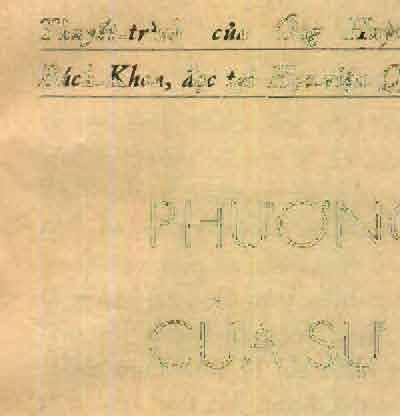 Thuyết trình của Ông
Bách Khoa, đọc tại
PHƯƠNG
CỦA SỰ